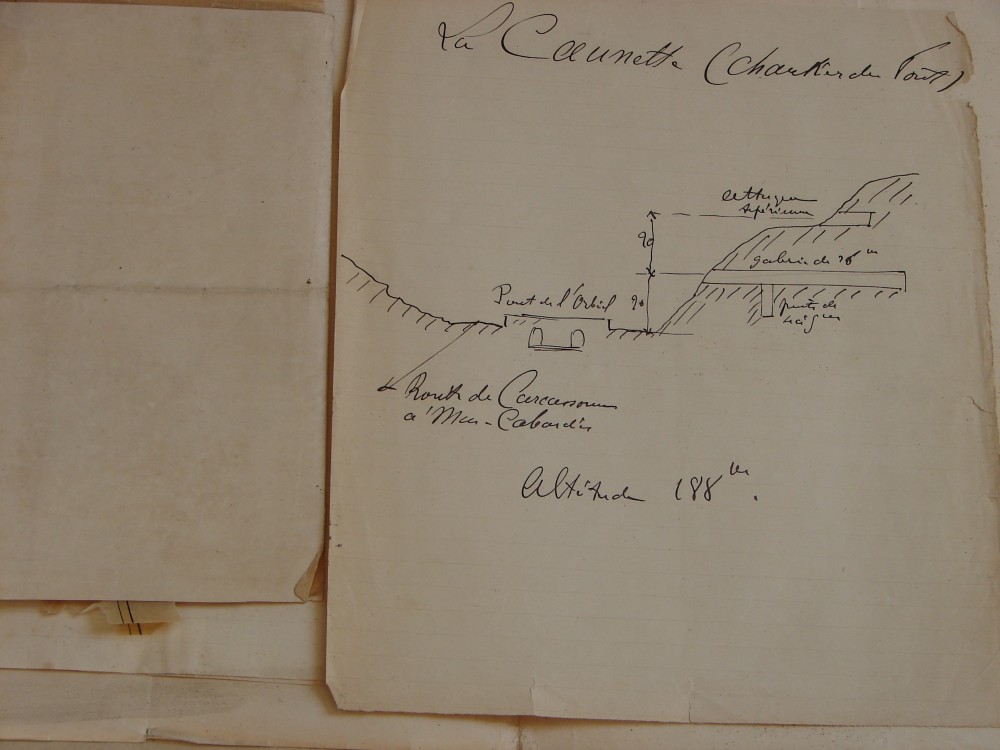 La Caunette (chantier du Pont)
attaque
supérieure
90
galerie de 76 m
90
Pont de l'Orbiel
puits de
Route de Carcassonne
à Mas-Cabardès
Altitude 188 m.